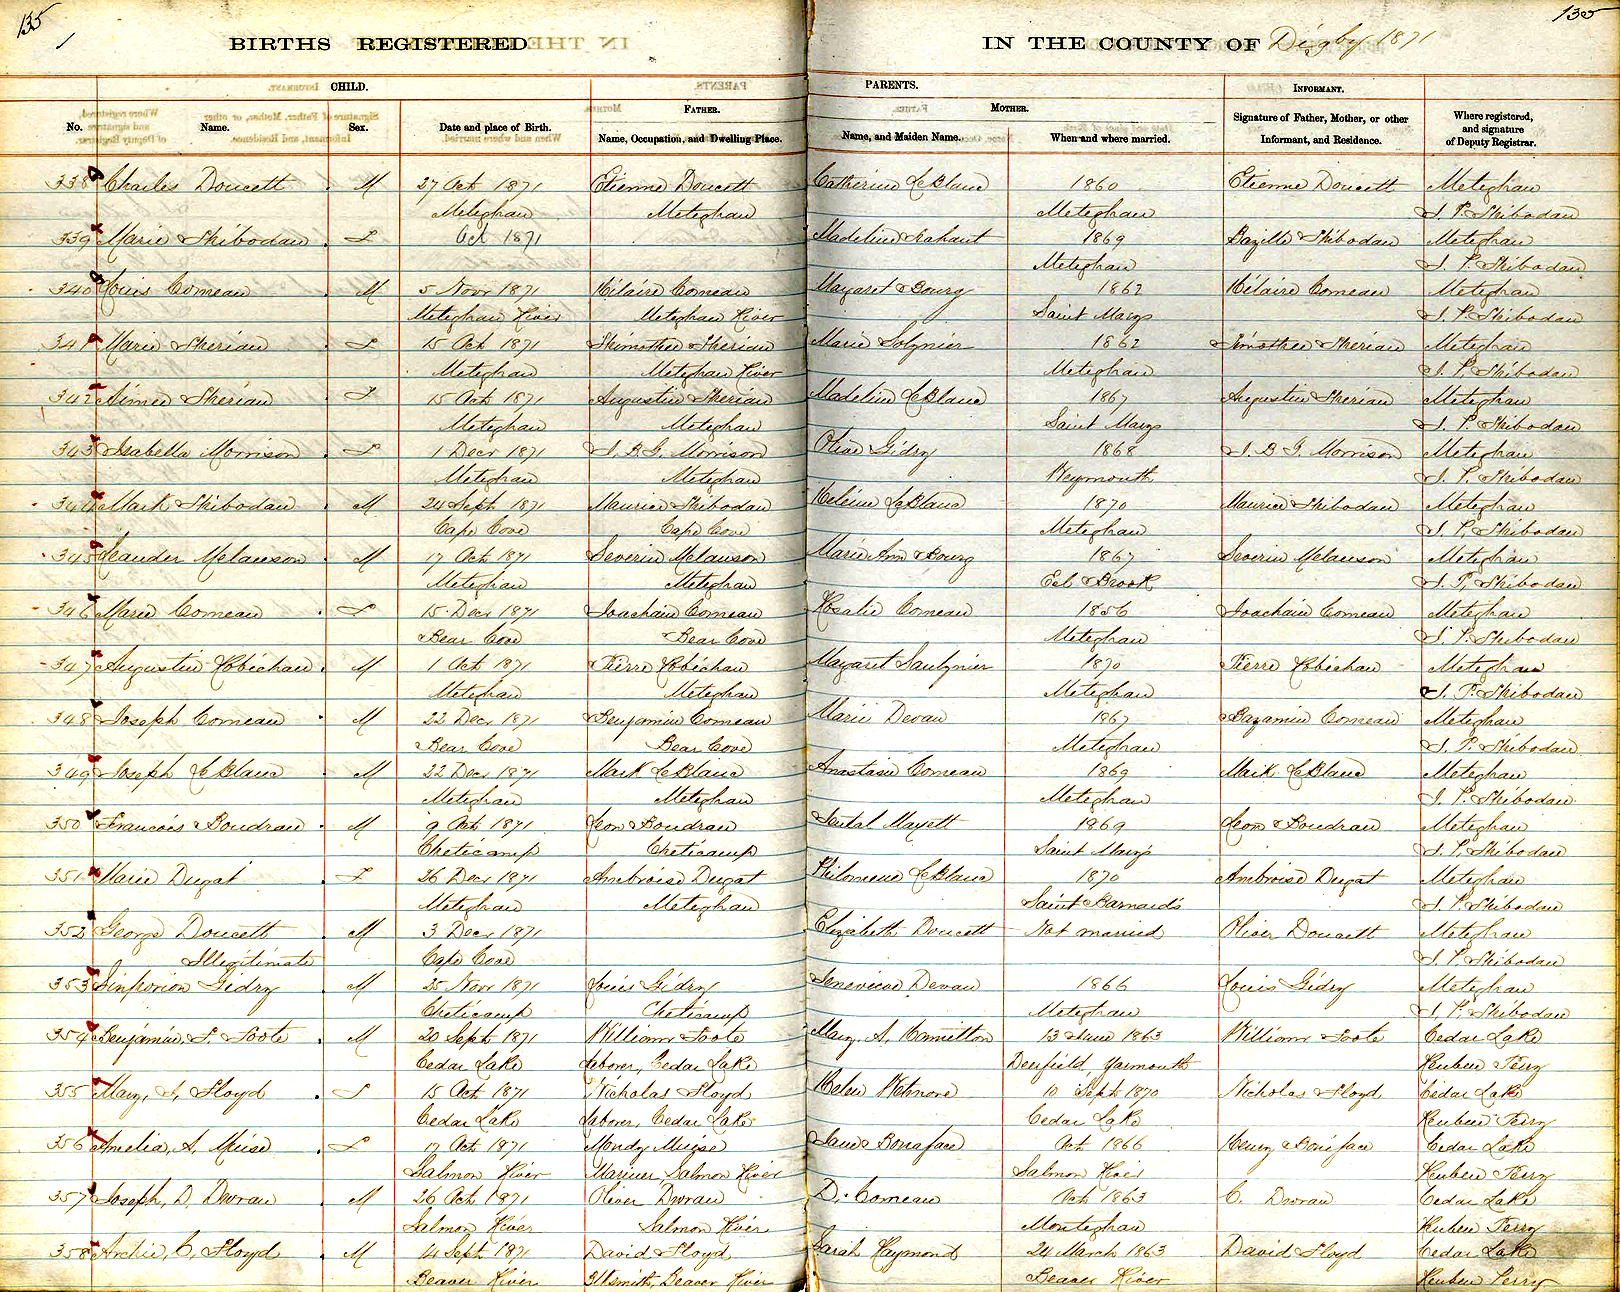 135 135
BIRTHS REGISTERED IN THE COUNTY OF Digby 1871
CHILD. PARENTS. INFORMANT.
No. Name. Sex. Date and place of Birth. Father. Name, Occupation, and Dwelling Place. Mother. Name, and Maiden Name. When and where married. Signature of Father, Mother, or other Informant, and Residence. Where registered, and signature of Deputy Registrar.
338 Charles Doucett M 27 Oct 1871 Etienne Doucett Catherine LeBlanc 1860 Etienne Doucett Meteghan
Meteghan Meteghan Meteghan J. P. Thibodau
339 Marie Thibodau F Oct 1871 Madeline 1869 Bazille Thibodau Meteghan
Meteghan J. P. Thibodau
340 Louis Comeau M 5 Novr 1871 Hilaire Comeau Margaret Bourg 1862 Hilaire Comeau Meteghan
Meteghan River Meteghan River Saint Marys J. P. Thibodau
341 Marie Therian F 15 Oct 1871 Thimothee Therian Marie Solnier 1862 Timothee Therian Meteghan
Meteghan Meteghan River Meteghan J. P. Thibodau
342 Aimee Therian F 15 Oct 1871 Augustin Therian Madeline LeBlanc 1867 Augustin Therian Meteghan
Meteghan Meteghan Saint Marys J. P. Thibodau
343 Isabella Morrison F 1 Decr 1871 J. B. G. Morrison Olive Gidry 1868 J. B. G. Morrison Meteghan
Meteghan Meteghan Weymouth J. P. Thibodau
344 Mark Thibodau M 24 Sept 1871 Maurice Thibodau Heleine LeBlanc 1870 Maurice Thibodau Meteghan
Cape Cove Cape Cove Meteghan J. P. Thibodau
345 Leander Melanson M 17 Oct 1871 Severin Melanson Marie Ann Bourg 1867 Severin Melanson Meteghan
Meteghan Meteghan Eel Brook J. P. Thibodau
346 Marie Comeau F 15 Decr 1871 Joachain Comeau Rosalie Comeau 1856 Joachain Comeau Meteghan
Bear Cove Bear Cove Meteghan J. P. Thibodau
347 Augustin Robichau M 1 Oct 1871 Pierre Robichau Margaret Saulnier 1870 Pierre Robichau Meteghan
Meteghan Meteghan Meteghan J. P. Thibodau
348 Joseph Comeau M 22 Decr 1871 Benjamin Comeau Marie Devau 1867 Comeau Meteghan
Bear Cove Bear Cove Meteghan J. P. Thibodau
349 Joseph LeBlanc M 22 Decr 1871 Mark LeBlanc Anastasie Comeau 1869 Mark LeBlanc Meteghan
Meteghan Meteghan Meteghan J. P. Thibodau
350 Francois Boudrau M 9 Oct 1871 Leon Boudrau Mayett 1869 Leon Boudrau Meteghan
Cheticamp Cheticamp Saint Marys J. P. Thibodau
351 Marie Dugat F 26 Decr 1871 Ambroise Dugat Philomene LeBlanc 1870 Ambroise Dugat Meteghan
Meteghan Meteghan Saint Barnards J. P. Thibodau
352 George Doucett M 3 Decr 1871 Elizabeth Doucett Not married Oliver Doucett Meteghan
Illegitimate Cape Cove J. P. Thibodau
353 Sinporion Gidry M 25 Novr 1871 Louis Gidry Genevieve Devau 1866 Louis Gidry Meteghan
Cheticamp Cheticamp Meteghan J. P. Thibodau
354 Benjamin, F. Foote M 20 Sept 1871 William Foote Mary, A, Hamilton 13 June 1863 William Foote Cedar Lake
Cedar Lake Laborer, Cedar Lake Deerfield, Yarmouth Reuben Perry
355 Mary, J, Floyd F 15 Oct 1871 Nicholas Floyd Helen Wetmore 10 Sept 1870 Nicholas Floyd Cedar Lake
Cedar Lake Laborer, Cedar Lake Cedar Lake Reuben Perry
356 Amelia, A, Muise F 17 Oct 1871 Mondy Muise Jane Bonaface Oct 1866 Henry Boniface Cedar Lake
Salmon River Mariner, Salmon River Salmon River Reuben Perry
357 Joseph, D, Dovrau M 26 Oct 1871 Oliver Dovrau D. Comeau Oct 1863 C. Dovrau Cedar Lake
Salmon River Salmon River Monteghan Reuben Perry
358 Archie, C, Floyd M 14 Sept 1871 David Floyd Sarah Raymond 24 March 1863 David Floyd Cedar Lake
Beaver River Blksmith, Beaver River Beaver River Reuben Perry